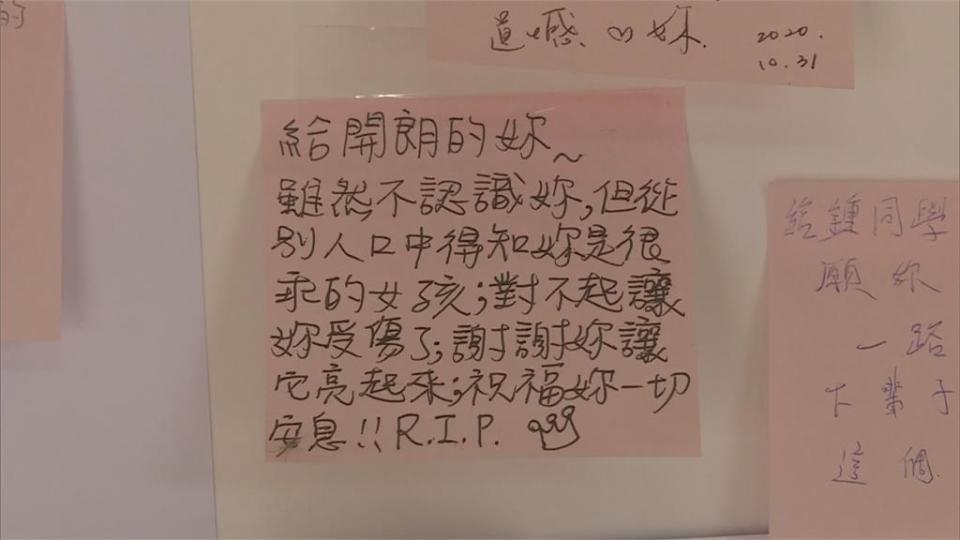 的
遺憾.
妳.
2020.
10.31
給開朗的妳~
雖然不認識妳,但從
別人口中得知妳是很
乖的女孩;對不起讓
妳受傷了;謝謝妳讓
它亮起來;祝福妳一切
安息!! R.I.P.
給鍾同學
願妳
一路
下輩子
這個